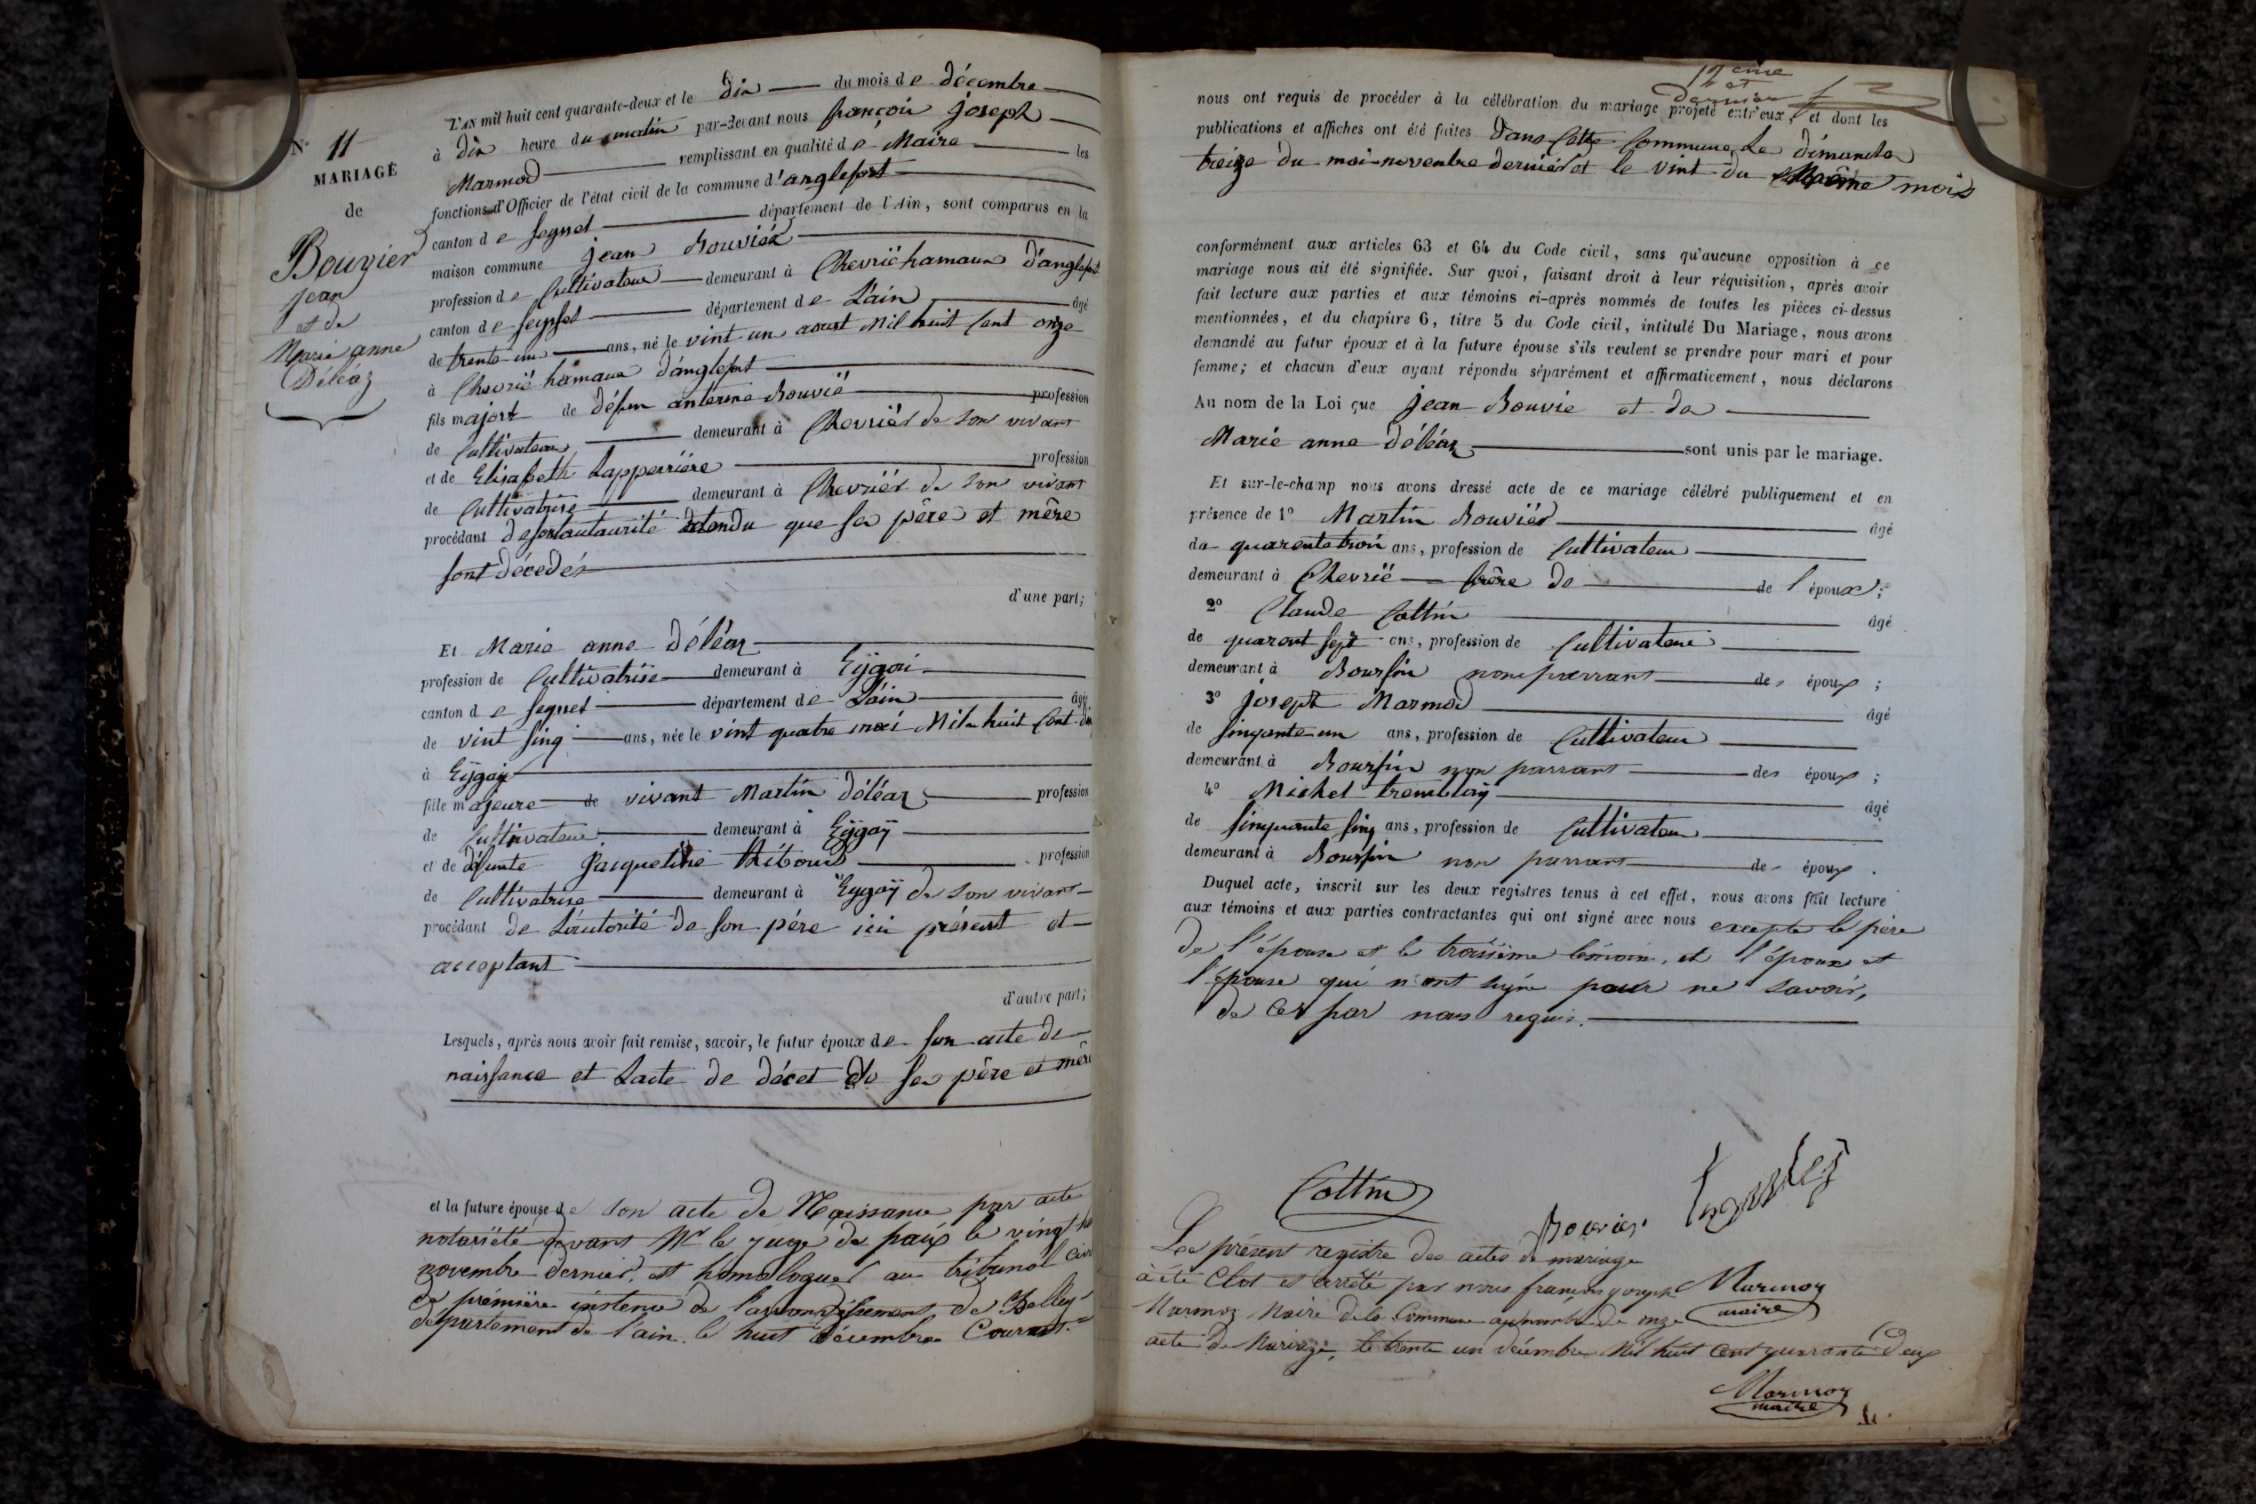 L'AN mil huit cent quarante-deux et le dix du mois de décembre
à dix heure du matin par-devant nous françois joseph
Marmod remplissant en qualité de Maire les
fonctions d'Officier de l'état civil de la commune d'anglefort
canton de segnet département de l'Ain, sont comparus en la
maison commune jean Bouviér
profession de Cultivateur demeurant à Chevrië hamaux d'anglefort
canton de seyssel département de L'ain âgé
de trente un ans, né le vint un aoust Mil huit Cent onze
à Chevrië hamaux d'anglefort
fils majort de défun anterme Bouvië profession
de Cultivateur demeurant à Chevrier de son vivant
et de Elisabeth Lapperriére profession
de Cultivatrise demeurant à Chevriër de son vivant
procédant desontautaurité attendu que ses père et mère
sont décedés
d'une part;
N° 11
MARIAGE
de
Bouvier
Jean
et de
Marie anne
Déléaz
Et Marie anne Déléaz
profession de Cultivatrise demeurant à Eÿgai
canton de segnet département de L'ain âgée
de vint sinq ans, née le vint quatre mai Mil huit Cent dix
à Eÿgaÿ
fille majeure de vivant Martin Déléaz profession
de Cultivateur demeurant à Eÿgaÿ
et de défunte Jacqueline Ribours profession
de Cultivatrise demeurant à Eygaÿ de son vivant
procédant de L'autorité de son pére ici présent et
acceptant
d'autre part;
Lesquels, après nous avoir fait remise, savoir, le futur époux de son acte de
naissance et L'acte de décet de ses père et mère
et la future épouse de son acte de Naissance par acte
notariété devant Mr le juge de paix le vingt
novembre dernier, et homologuer au tribunal civil
de première instence de l'arrondissement de Belley
département de l'ain. le huit décembre Courant.
12eme
et
dernier
nous ont requis de procéder à la célébration du mariage projeté entr'eux, et dont les
publications et affiches ont été faites Dans Cette Commune Le dimanche
treize du moi novembre dernier et le vint du Même mois
conformément aux articles 63 et 64 du Code civil, sans qu'aucune opposition à ce
mariage nous ait été signifiée. Sur quoi, faisant droit à leur réquisition, après avoir
fait lecture aux parties et aux témoins ci-après nommés de toutes les pièces ci-dessus
mentionnées, et du chapitre 6, titre 5 du Code civil, intitulé Du Mariage, nous avons
demandé au futur époux et à la future épouse s'ils veulent se prendre pour mari et pour
femme; et chacun d'eux ayant répondu séparément et affirmativement, nous déclarons
Au nom de la Loi que jean Bouvie et de
Marie anne Déléaz sont unis par le mariage.
Et sur-le-champ nous avons dressé acte de ce mariage célébré publiquement et en
présence de 1° Martin Bouviér âgé
de quarente trois ans, profession de Cultivateur
demeurant à Chevrië frère de de l'époux;
2° Claude Cottin âgé
de quarant sept ans, profession de Cultivateur
demeurant à Boursin non parrans des époux;
3° josept Marmod âgé
de sinqante un ans, profession de Cultivateur
demeurant à Boursin non parrans des époux;
4° Michel tremblaÿ âgé
de sinquante sinq ans, profession de Cultivateur
demeurant à Boursin non parrans des époux.
Duquel acte, inscrit sur les deux registres tenus à cet effet, nous avons fait lecture
aux témoins et aux parties contractantes qui ont signé avec nous excepté le père
de l'épouse et le troisième témoin, et l'époux et
l'épouse qui n'ont signé pour ne savoir,
de ces par nous requis.
Cottin
Bouvier
Le présent registre des actes de mariage
à été Clos et arrêté par nous françois joseph
Marmoz Maire de la Commune au nombre de onze
acte de Mariage, le trente un décembre Mil huit Cent quarante Deux
Marmoz
maire
Marmoz
maire